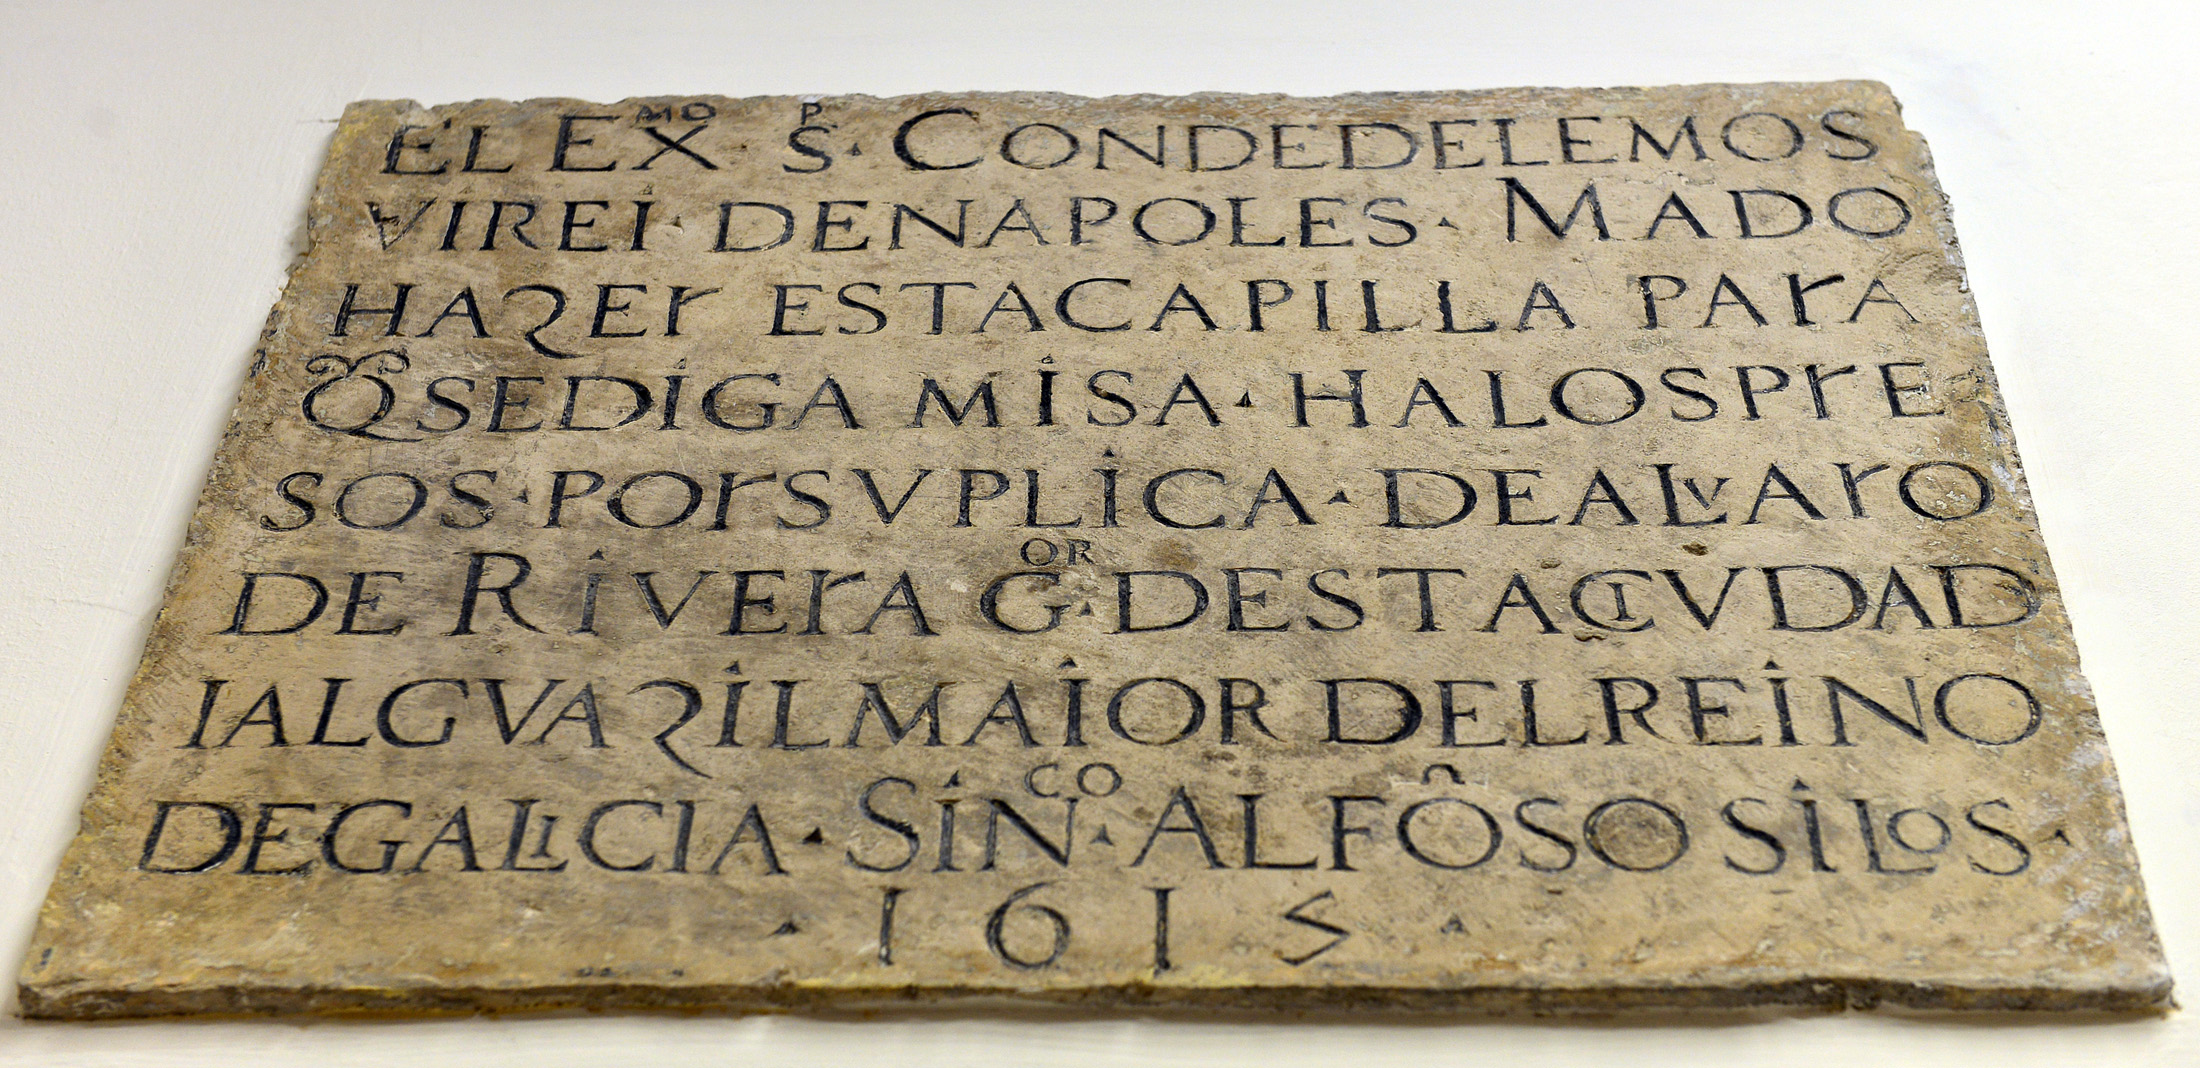 EL EXᴹᴼ · Sᴾ · CONDEDELEMOS
VIREI · DENAPOLES · MADO
HAZER ESTACAPILLA PARA
Q̃SEDIGA MISA · HALOSPRE
SOS · PORSVPLICA · DEALVARO
DE RIVERA Gᴼᴿ · DESTACIVDAD
IALGVAZILMAIOR DELREINO
DEGALICIA · SINᶜᴼ · ALFÔSO SILOS ·
· 1615 ·